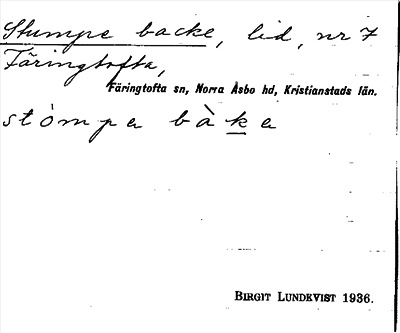 Stumpe backe, lid, nr 7
Färingtofta,
Färingtofta sn, Norra Åsbo hd, Kristianstads län.
stòmpa bàka
BIRGIT LUNDKVIST 1936.